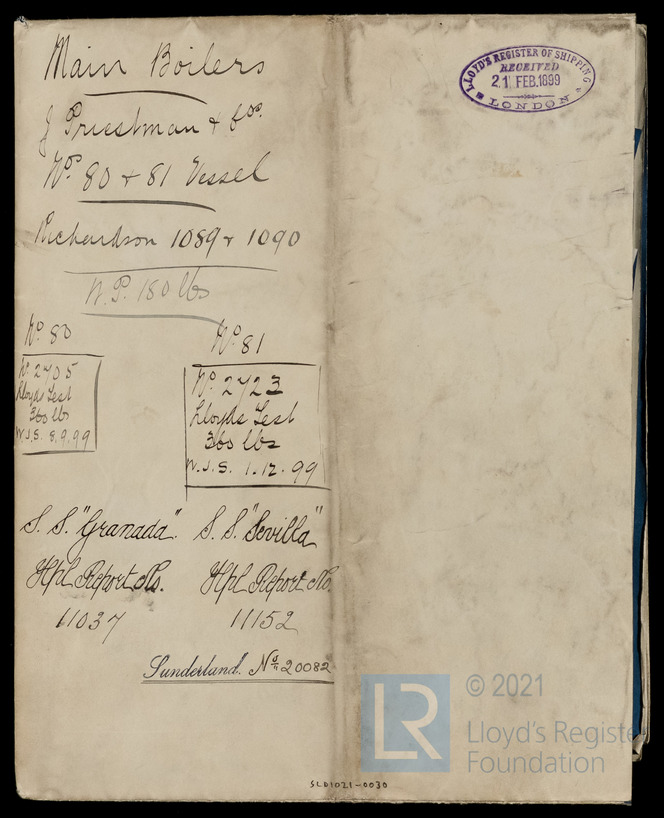 Main Boilers
J Priestman & Cos.
No. 80 & 81 Vessel
Richardson 1089 & 1090
W.P. 180 lbs
No 80
No 81
No 2705
Lloyds Test
360 lbs
W.J.S. 8.9.99
No. 2723
Lloyds Test
360 lbs
W.J.S. 1.12.99
S. S. "Granada".
S. S. "Sevilla"
Hpl Report No.
Hpl Report No.
11037
11152
Sunderland. No 20082
LLOYD'S REGISTER OF SHIPPING
RECEIVED
21 FEB.1899
LONDON
LR
© 2021
Lloyd's Registe
Foundation
SLD1021-0030